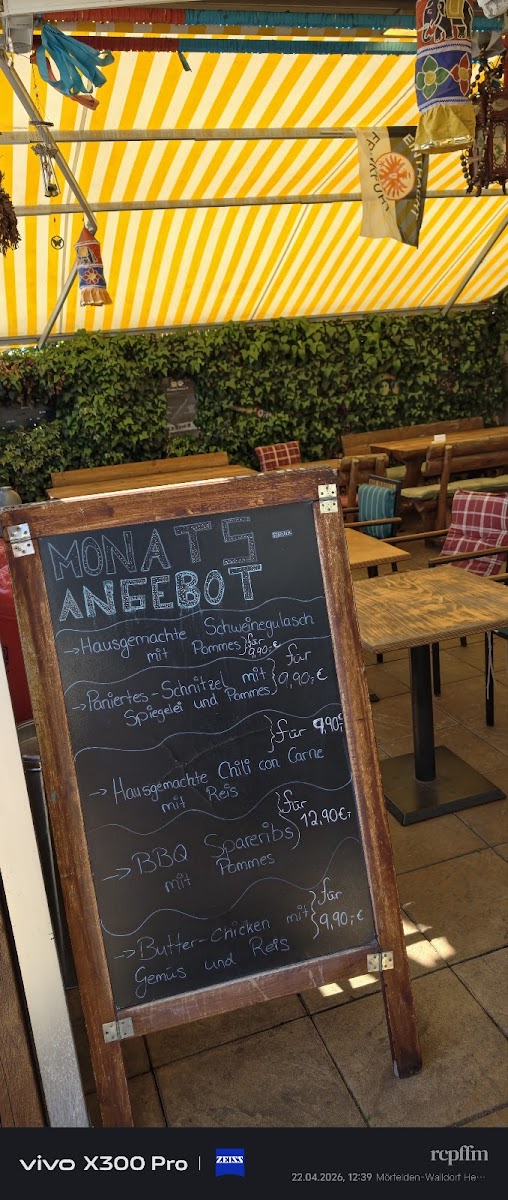 MONATS-
ANGEBOT
→ Hausgemachte Schweinegulasch
mit Pommes } für 9,90,-€
→ Paniertes-Schnitzel mit
Spiegelei und Pommes } für 9,90,-€
→ Hausgemachte Chili con Carne
mit Reis } für 9,90€
→ BBQ Spareribs
mit Pommes } für 12,90€,-
→ Butter-chicken mit
Gemüs und Reis } für 9,90,-€
vivo X300 Pro | ZEISS
rcpffm
22.04.2026, 12:39 Mörfelden-Walldorf He···